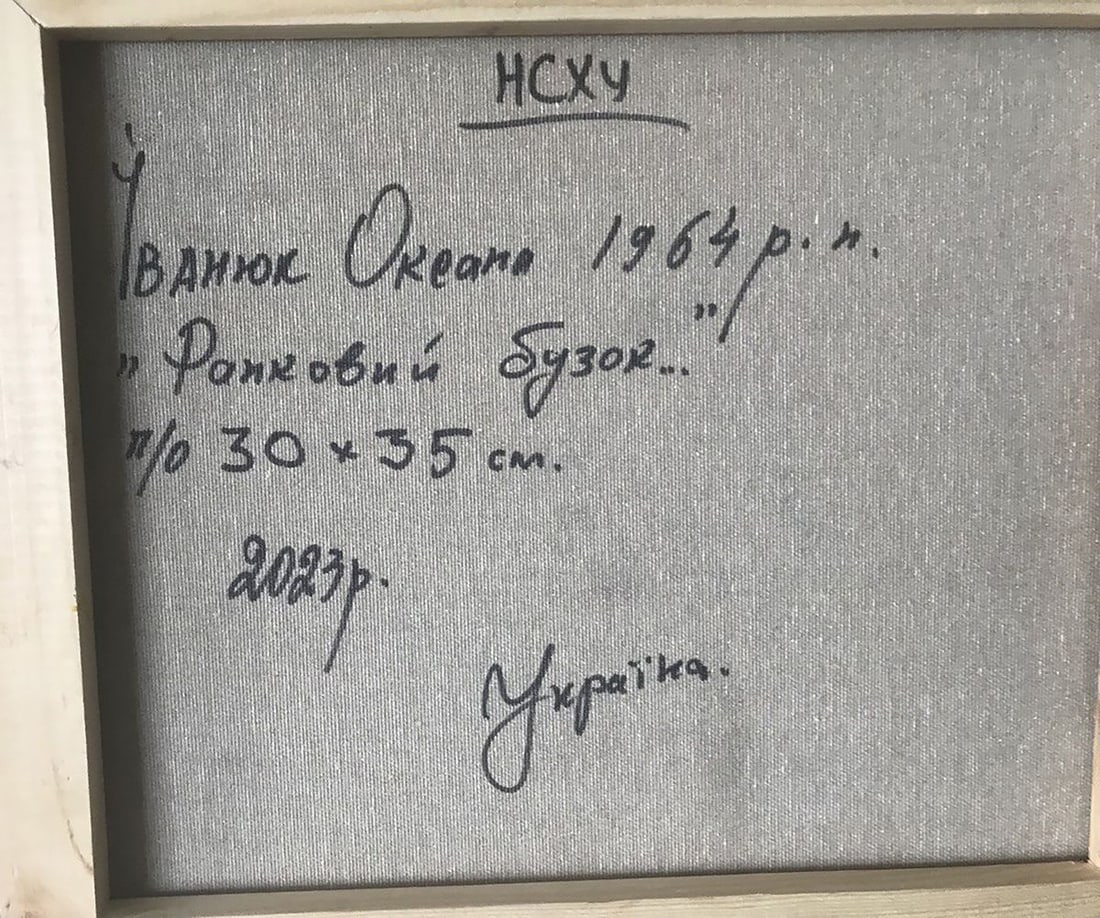 НСХУ
Іванюк Оксана 1964 р.н.
„Ранковий бузок..."
п/о 30 x 35 см.
2023р.
Україна.